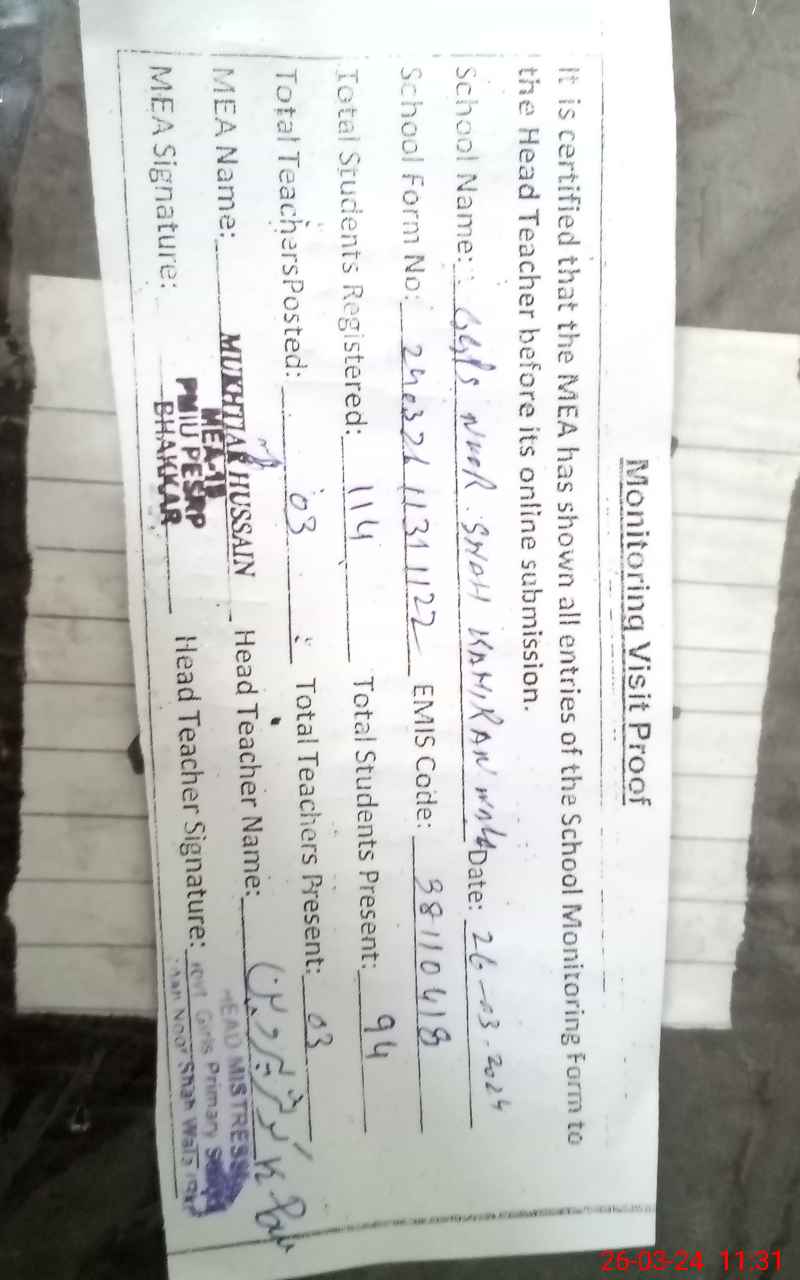 Monitoring Visit Proof
It is certified that the MEA has shown all entries of the School Monitoring Form to
the Head Teacher before its online submission.
School Name: GGPS NOOR SHAH KAMIRAN wala Date: 26-03-2024
School Form No: 240321131122 EMIS Code: 38110418
Total Students Registered: 114 Total Students Present: 94
Total Teachers Posted: 03 Total Teachers Present: 03
MEA Name: MUKHTIAR HUSSAIN Head Teacher Name: کوثر پروین
MEA-19
PMIU PESRP
BHAKKAR
MEA Signature: Head Teacher Signature:
HEAD MISTRESS
Govt. Girls Primary School
Noor Shah Wala
26-03-24 11:31